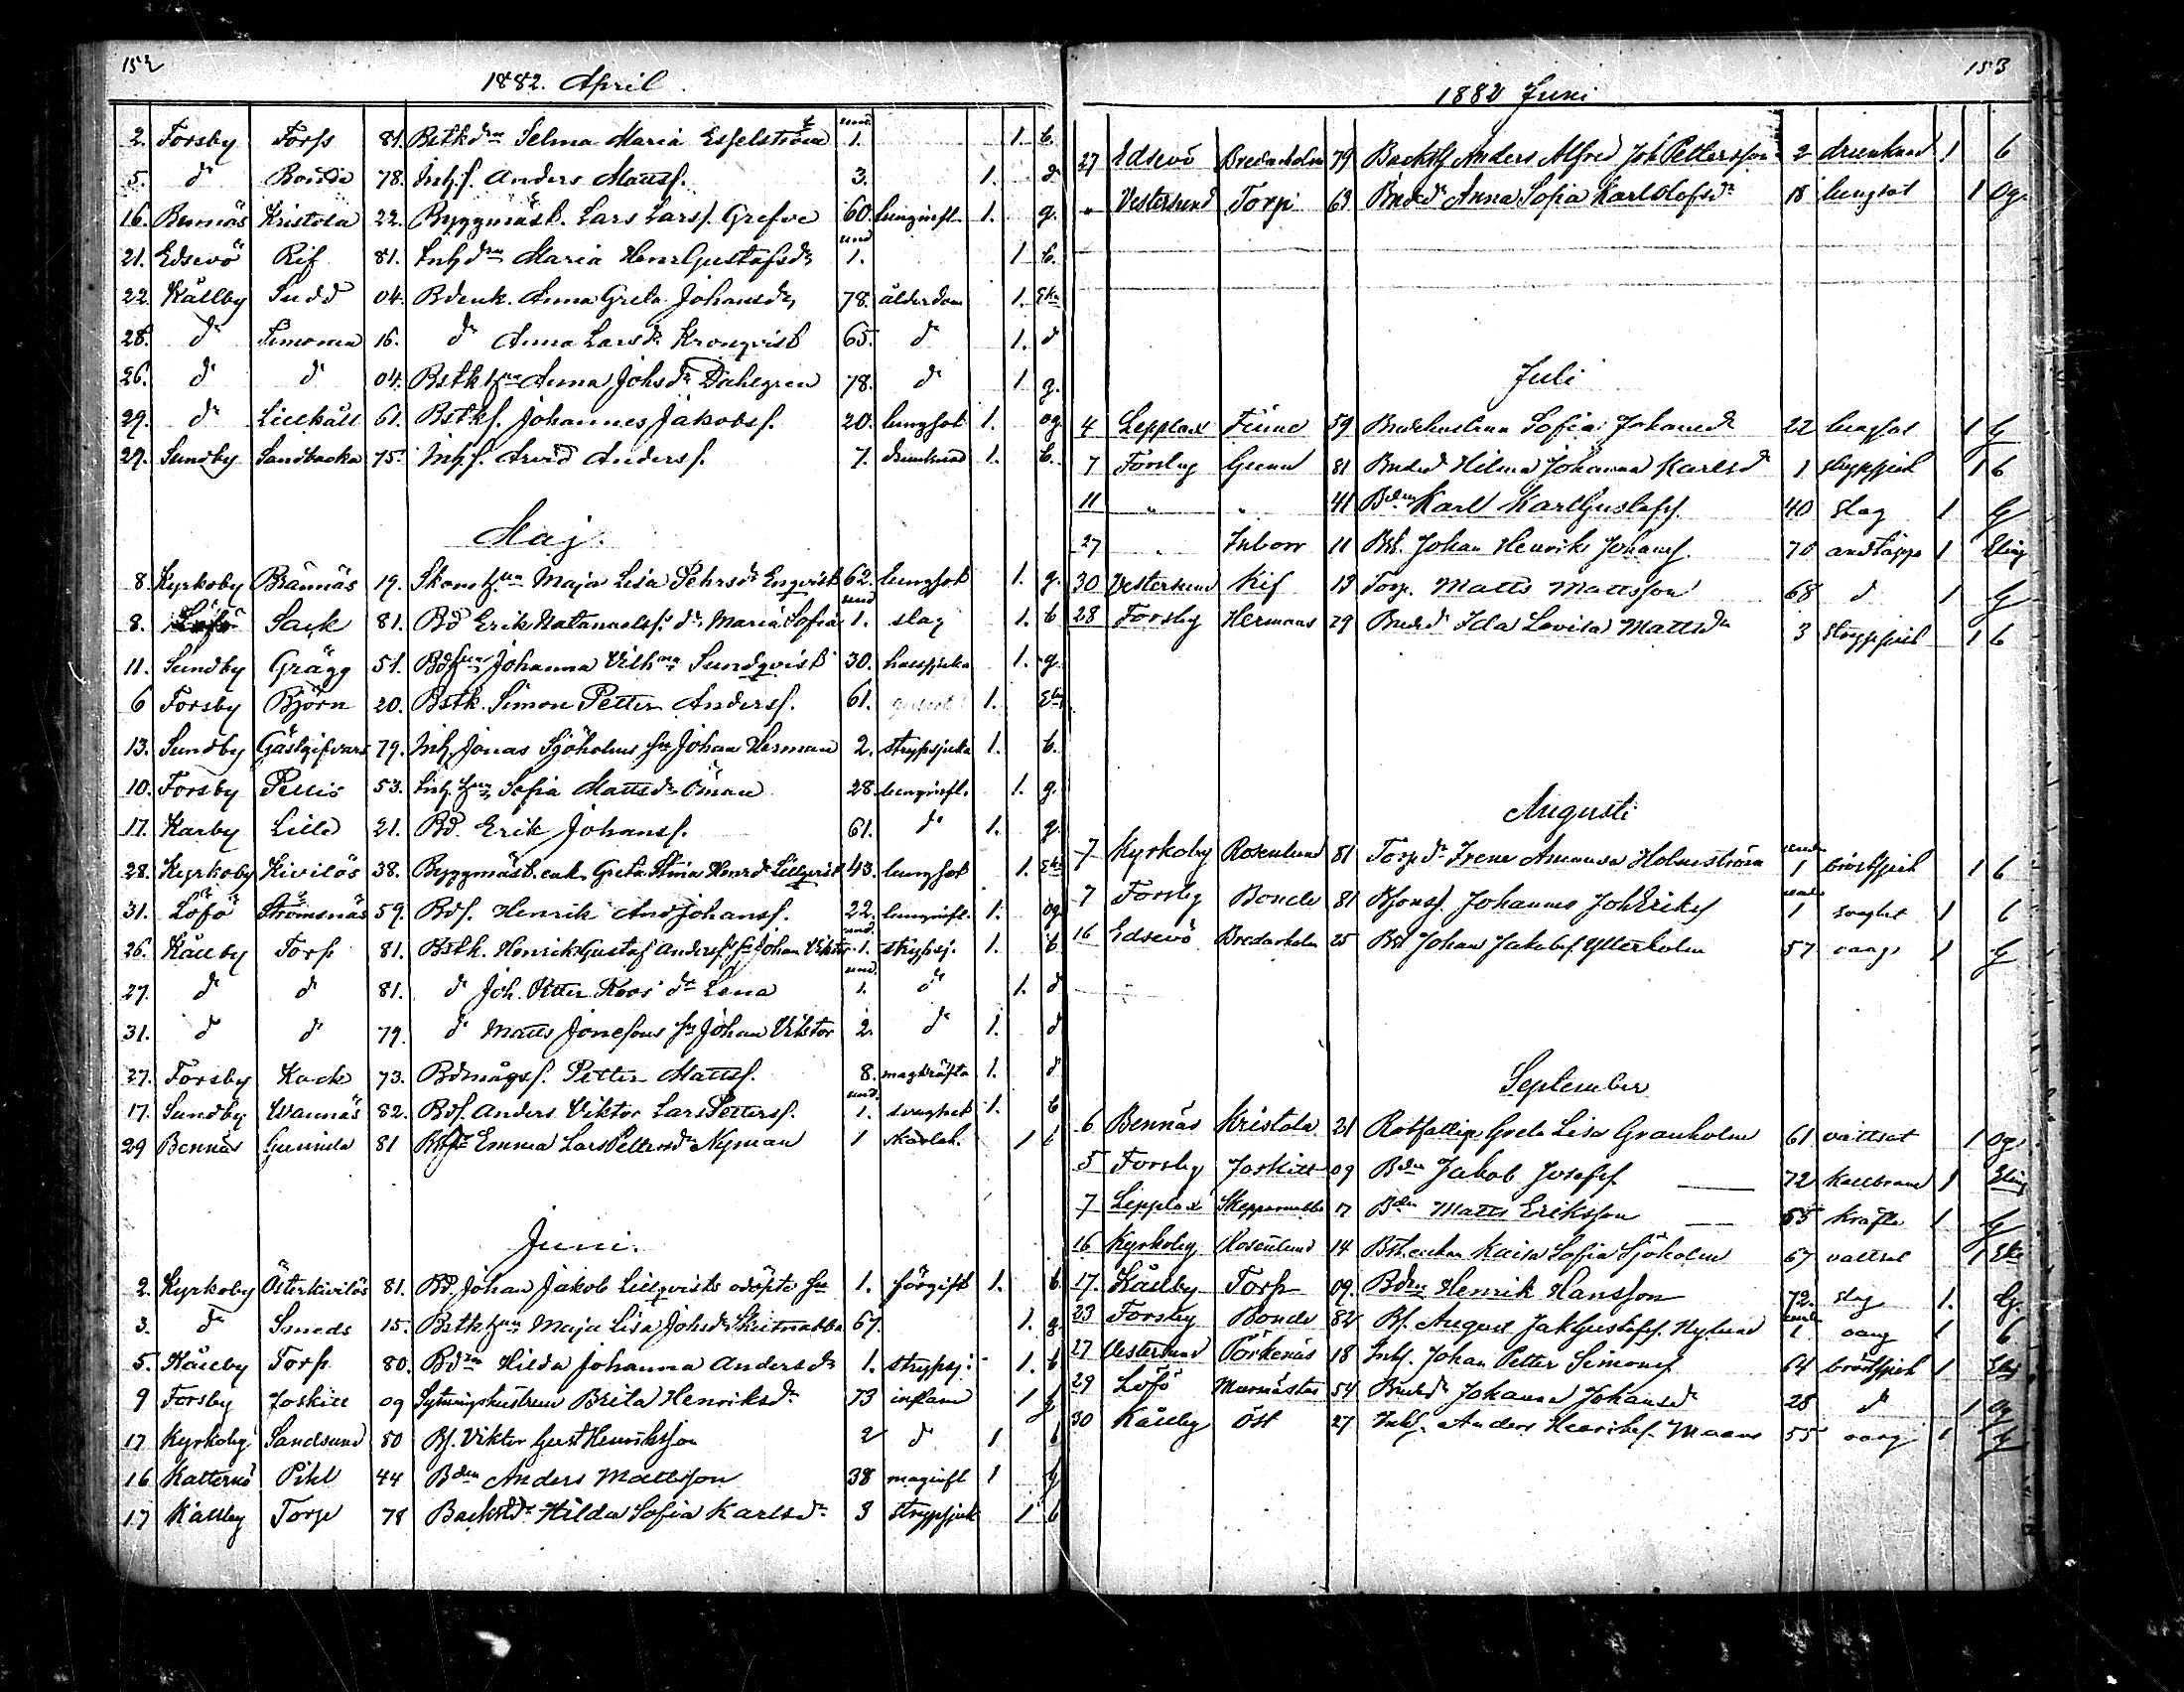 152
1882. April
und.
2. Forsby Torp 81. Bstkdrn Selma Maria Esselström 1. 1. b.
5. do Bonde 78. Inh.s. Anders Mattss. 3. 1. do
16. Bennäs Kristola 22. Byggmäst. Lars Larss. Grefve 60. lunginfl. 1. g.
und
21. Edsevö Rif 81. Inhdrn Maria HenrGustafsdr 1. 1 b.
22. Kållby Sudd 04. Bdenk. Anna Greta Johansdr 78. ålderdom 1. Eka
28. do Simonsa 16. do Anna Larsdr Kronqvist 65. do 1. d
26. do do 04. Bstkhun Anna Johsdr Dahlgren 78. do 1 g.
29. do Lillkåll 61. Bstks. Johannes Jakobs. 20. lungsot 1. og
29. Sundby Sandbacka 75. Inh.s. Arvid Anderss. 7. drunknad 1. b.
Maj.
8. Kyrkoby Brännäs 19. Skom.h:un Maja Lisa Pehrsdr Enqvist 62. lungsot 1. g.
und
8. Löfö Sack 81. Bd Erik Natanaelss. dr Maria Sofia 1. slag 1. b
11. Sundby Grägg 51. Bdhun Johanna Vilhna Sundqvist 30. halssjuka 1. g.
6 Forsby Björn 20. Bstk. Simon Petter Anderss. 61. 1. Ekl
13. Sundby Gästgifvars 79. Inh. Jonas Sjöholms sn Johan Herman 2. strypsjuka 1. b.
10. Forsby Pellis 53. Inh. hun Sofia Mattsdr Öman 28 lunginfl. 1. g.
17. Karby Lille 21. Bd. Erik Johanss. 61. do 1. g.
28. Kyrkoby Kivilös 38. Byggmäst. enk. Greta Stina Henrdr Lillqvist 43. lungsot 1. Eka
31. Löfö Strömsnäs 59. Bds. Henrik AndJohanss. 22. lunginfl. 1. og
und.
26. Kållby Torp 81. Bstk. HenrikGustaf Anderss. sn Johan Viktor 1. strypsj. 1. b
und.
27. do do 81. do Joh. Petter Roos dr Lena 1. do 1. d
31. do do 79. do Matts Jonessons sn Johan Viktor 2. do 1. d
27. Forsby Kack 73. Bdmågss. Petter Mattss. 8. magkräfta 1. d
und.
17. Sundby Wannäs 82. Bds. Anders Viktor LarsPetterss. 1. svaghet 1. b
29 Bennäs Gunnila 81 Emma LarsPettersdr Nyman 1 skarlak. 1 b
Juni.
2. Kyrkoby Österkivilös 81. Bd. Johan Jakob Lillqvists odöpte sn 1. förgift 1. b
3. do Smeds 15. Bstkhun Maja Lisa Johsdr Skutnabba 67. 1. g.
5. Kållby Torp 80. Bdrn Hilda Johanna Andersdr 1. strypsj. 1. b
9 Forsby Joskill 09 Sytningshustrun Brita Henriksdr 73 inflam 1 g
17 Kyrkoby Sandsund 80 Bs. Viktor Gust Henriksson 2 do 1 b
16 Katternö Pihl 44 Bden Anders Mattsson 38 maginfl 1 g
17 Kållby Torp 78 Backstdr Hilda Sofia Karlsdr 3 strypsjuk 1 b
153
1882 Juni
27 Edsevö Bredarholm 79 Backsts Anders Alfred Joh Pettersson 2 drunknad 1 b
" Vestersund Torpi 63 Bndedr Anna Sofia KarlOlofsdr 18 lungsot 1 Og.
Juli
4 Lepplax Finne 59 Bndehustrun Sofia Johansdr 22 lungsot 1 G
7 Forsby Gunn 81 Bndedr Hilma Johanna Karlsdr 1 strypsjuk 1 b
11 " " 41 Bden Karl KarlGustafss. 40 slag 1 G
27 " Inborr 11 Bst. Johan Henriks Johanss. 70 andtäppa 1 Eling
30 Vestersund Kif 13 Torp. Matts Mattsson 68 d 1 G
28 Forsby Hermans 79 Bndedr Ida Lovisa Mattsdr 3 strypsjuk 1 b
Augusti
und
7 Kyrkoby Rosenlund 81 Torpdr Irene Amanda Holmström 1 bröstsjuk 1 b
und
7 Forsby Bonde 81 Johannes JohEriks 1 svaghet 1 b
16 Edsevö Bredarholm 25 Bst Johan Jakobss. Ytterholm 57 oang. 1 G
September
6 Bennäs Kristola 21 Rotfattiga Greta Lisa Granholm 61 vattsot 1 Og.
5 Forsby Joskill 09 Bden Jakob Josefss. 72 kallbrand 1 Eling
7 Lepplax Skepparnabba 17 Bden Matts Eriksson 65 kräfta 1 G
16 Kyrkoby Rosenlund 14 Bst.enkan Kaisa Sofia Sjöholm 67 vattsot 1 Eka
17. Kållby Torp 09. Bden Henrik Hansson 72. slag 1. G.
und
23 Forsby Bonde 82 Bs. August JakGustafss. Nylund 1 oang 1 b
27 Vestersund Pörkenäs 18 Inhs. Johan Petter Simonss 64 bröstsjuk 1 Elg
29 Löfö Murmästar 54 Bndedr Johanna Johansdr 28 d 1 Og
30 Kållby Öst 27 Inhs. Anders Henrikss. Maans 55 oang 1 G